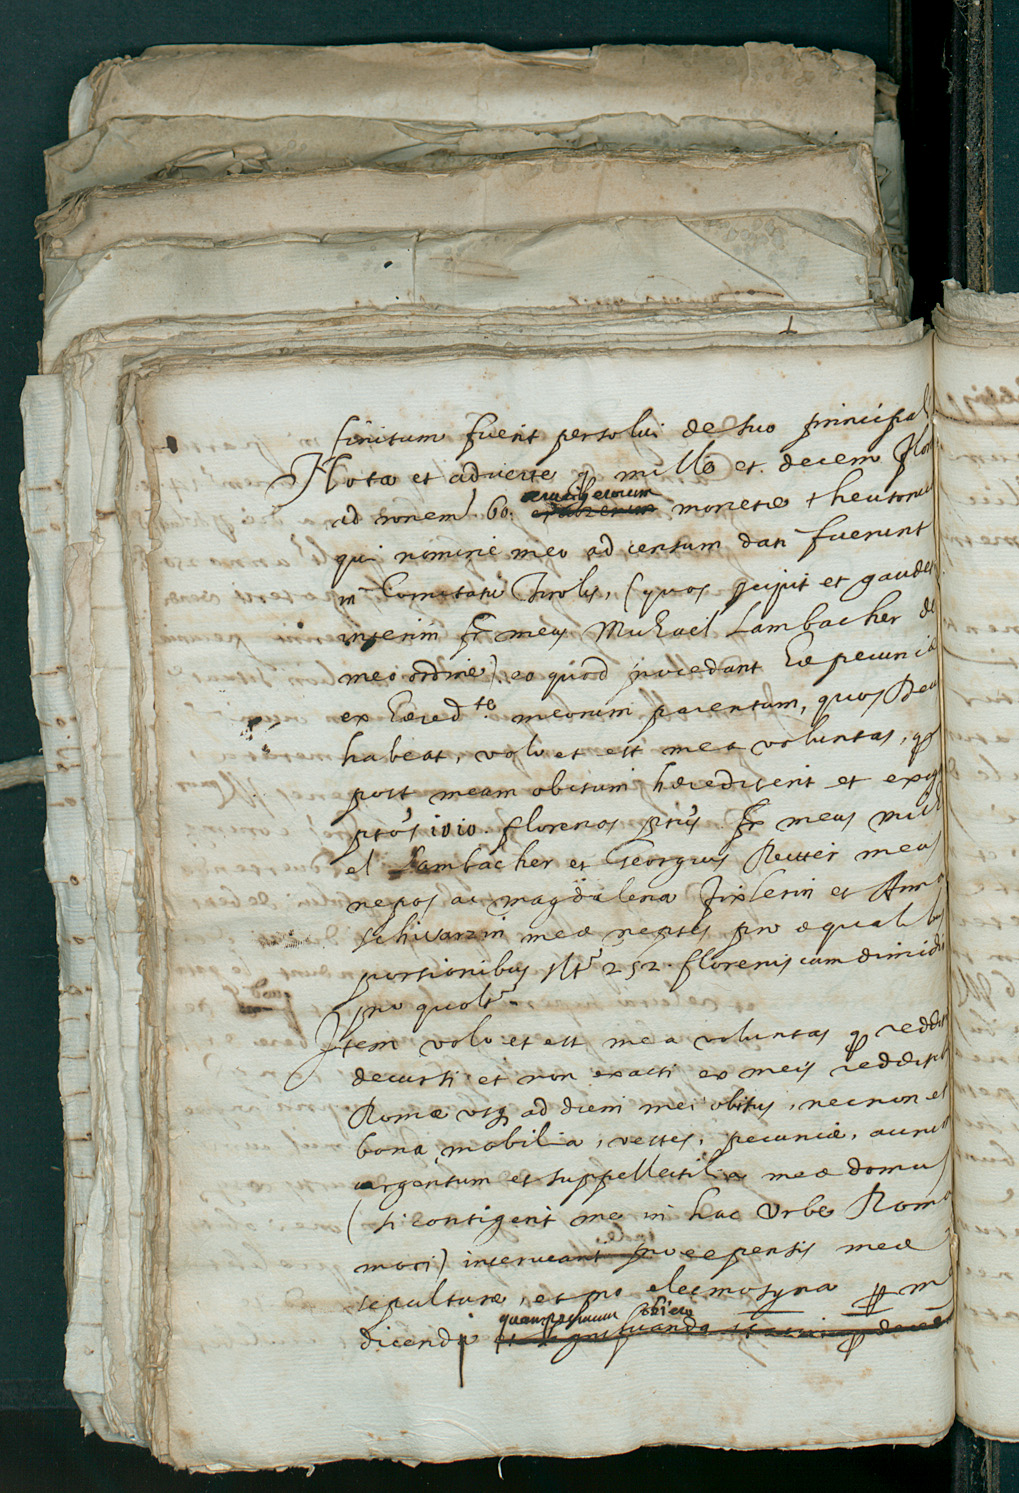 finitum fuerit persolui de suo principal
Nota et aduerte q mille et decem flor
ad ronem 60. cruciferorum monete theutonic
qui nomine meo ad censum dati fuerunt
in Comitatu Tirolis, (quos et gaudet
interim fr meus Michael Lambacher de
meo ordine) eo quod procedant he pecunie
ex hered.te meorum parentum, quos Deus
habeat, volo et est mea voluntas, q
post meam obitum hereditent et exig
ptos 1010. florenos ptus fr meus Mich
el Lambacher et Georgius Reutter meus
nepos ac Magdalena Fixlerin et Anna
Schwarzin mee neptes pro equalibus
portionibus 252. florenis cum dimidio
pro quolt
Item volo et est mea voluntas q redditus
decursi et non exacti ex meis redditibus
Rome usq ad diem mei obitus, necnon et
bona mobilia, vestes, pecunie, aurum
argentum et suppellectilia mee domus
(si contigerit me in hac Urbe Roma
mori) inserueant pro expensis mee
sepulture, et pro elemosyna p m
dicendis quampochium obiero